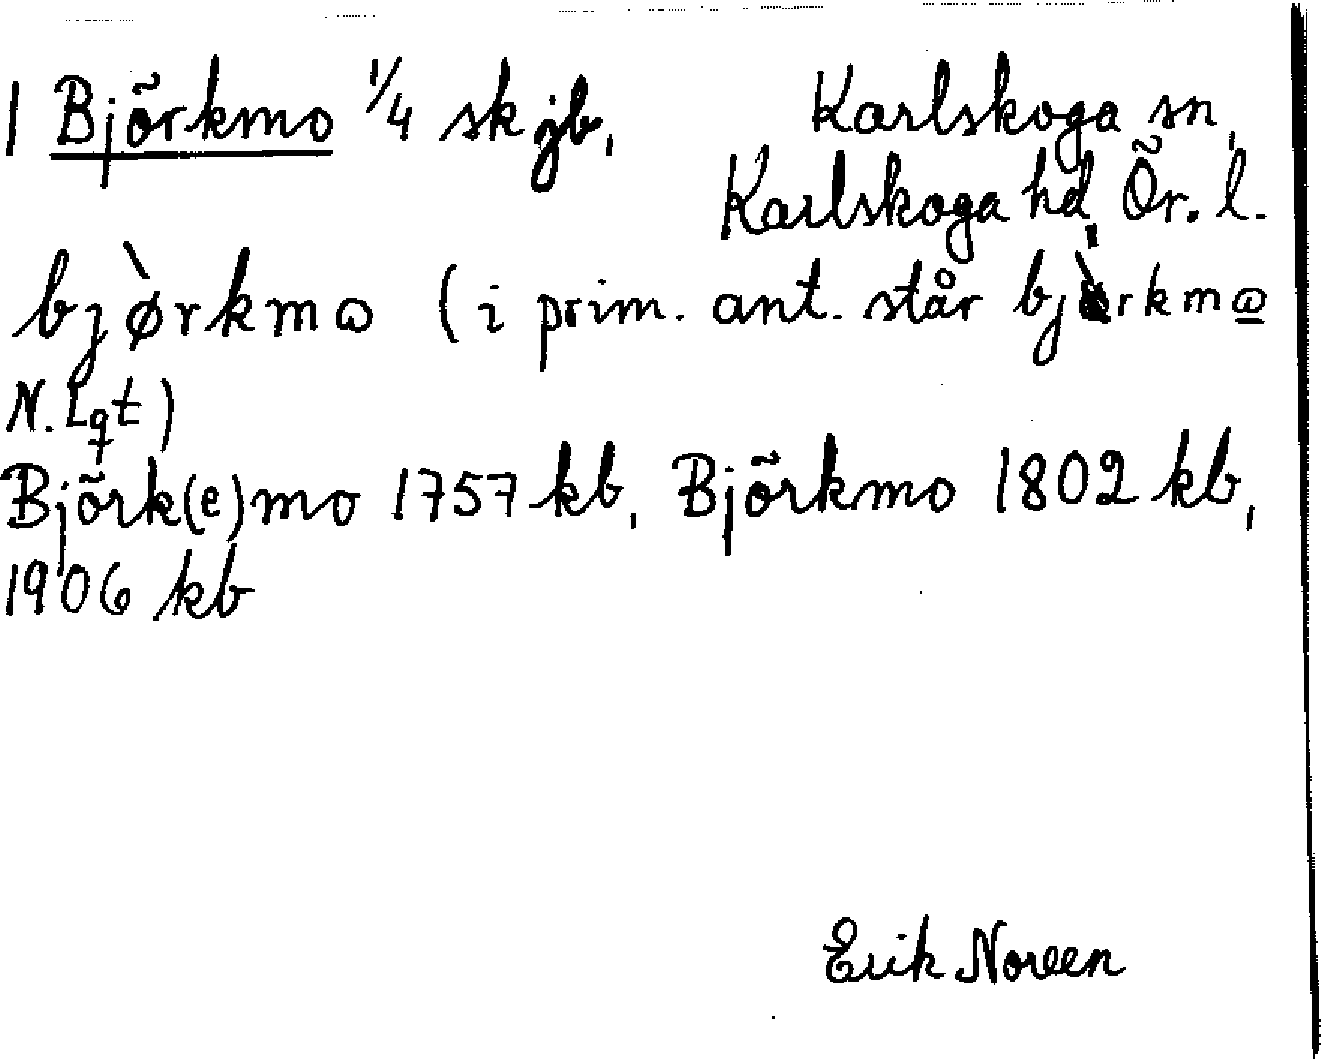 1 Björkmo 1/4 sk jb, Karlskoga sn,
Karlskoga hd, Ör. l.
bjø̀rkmɷ (i prim. ant. står bjø̀rkmɷ̲
N. Lqt)
Björk(e)mo 1757 kb, Björkmo 1802 kb,
1906 kb
Erik Noreen